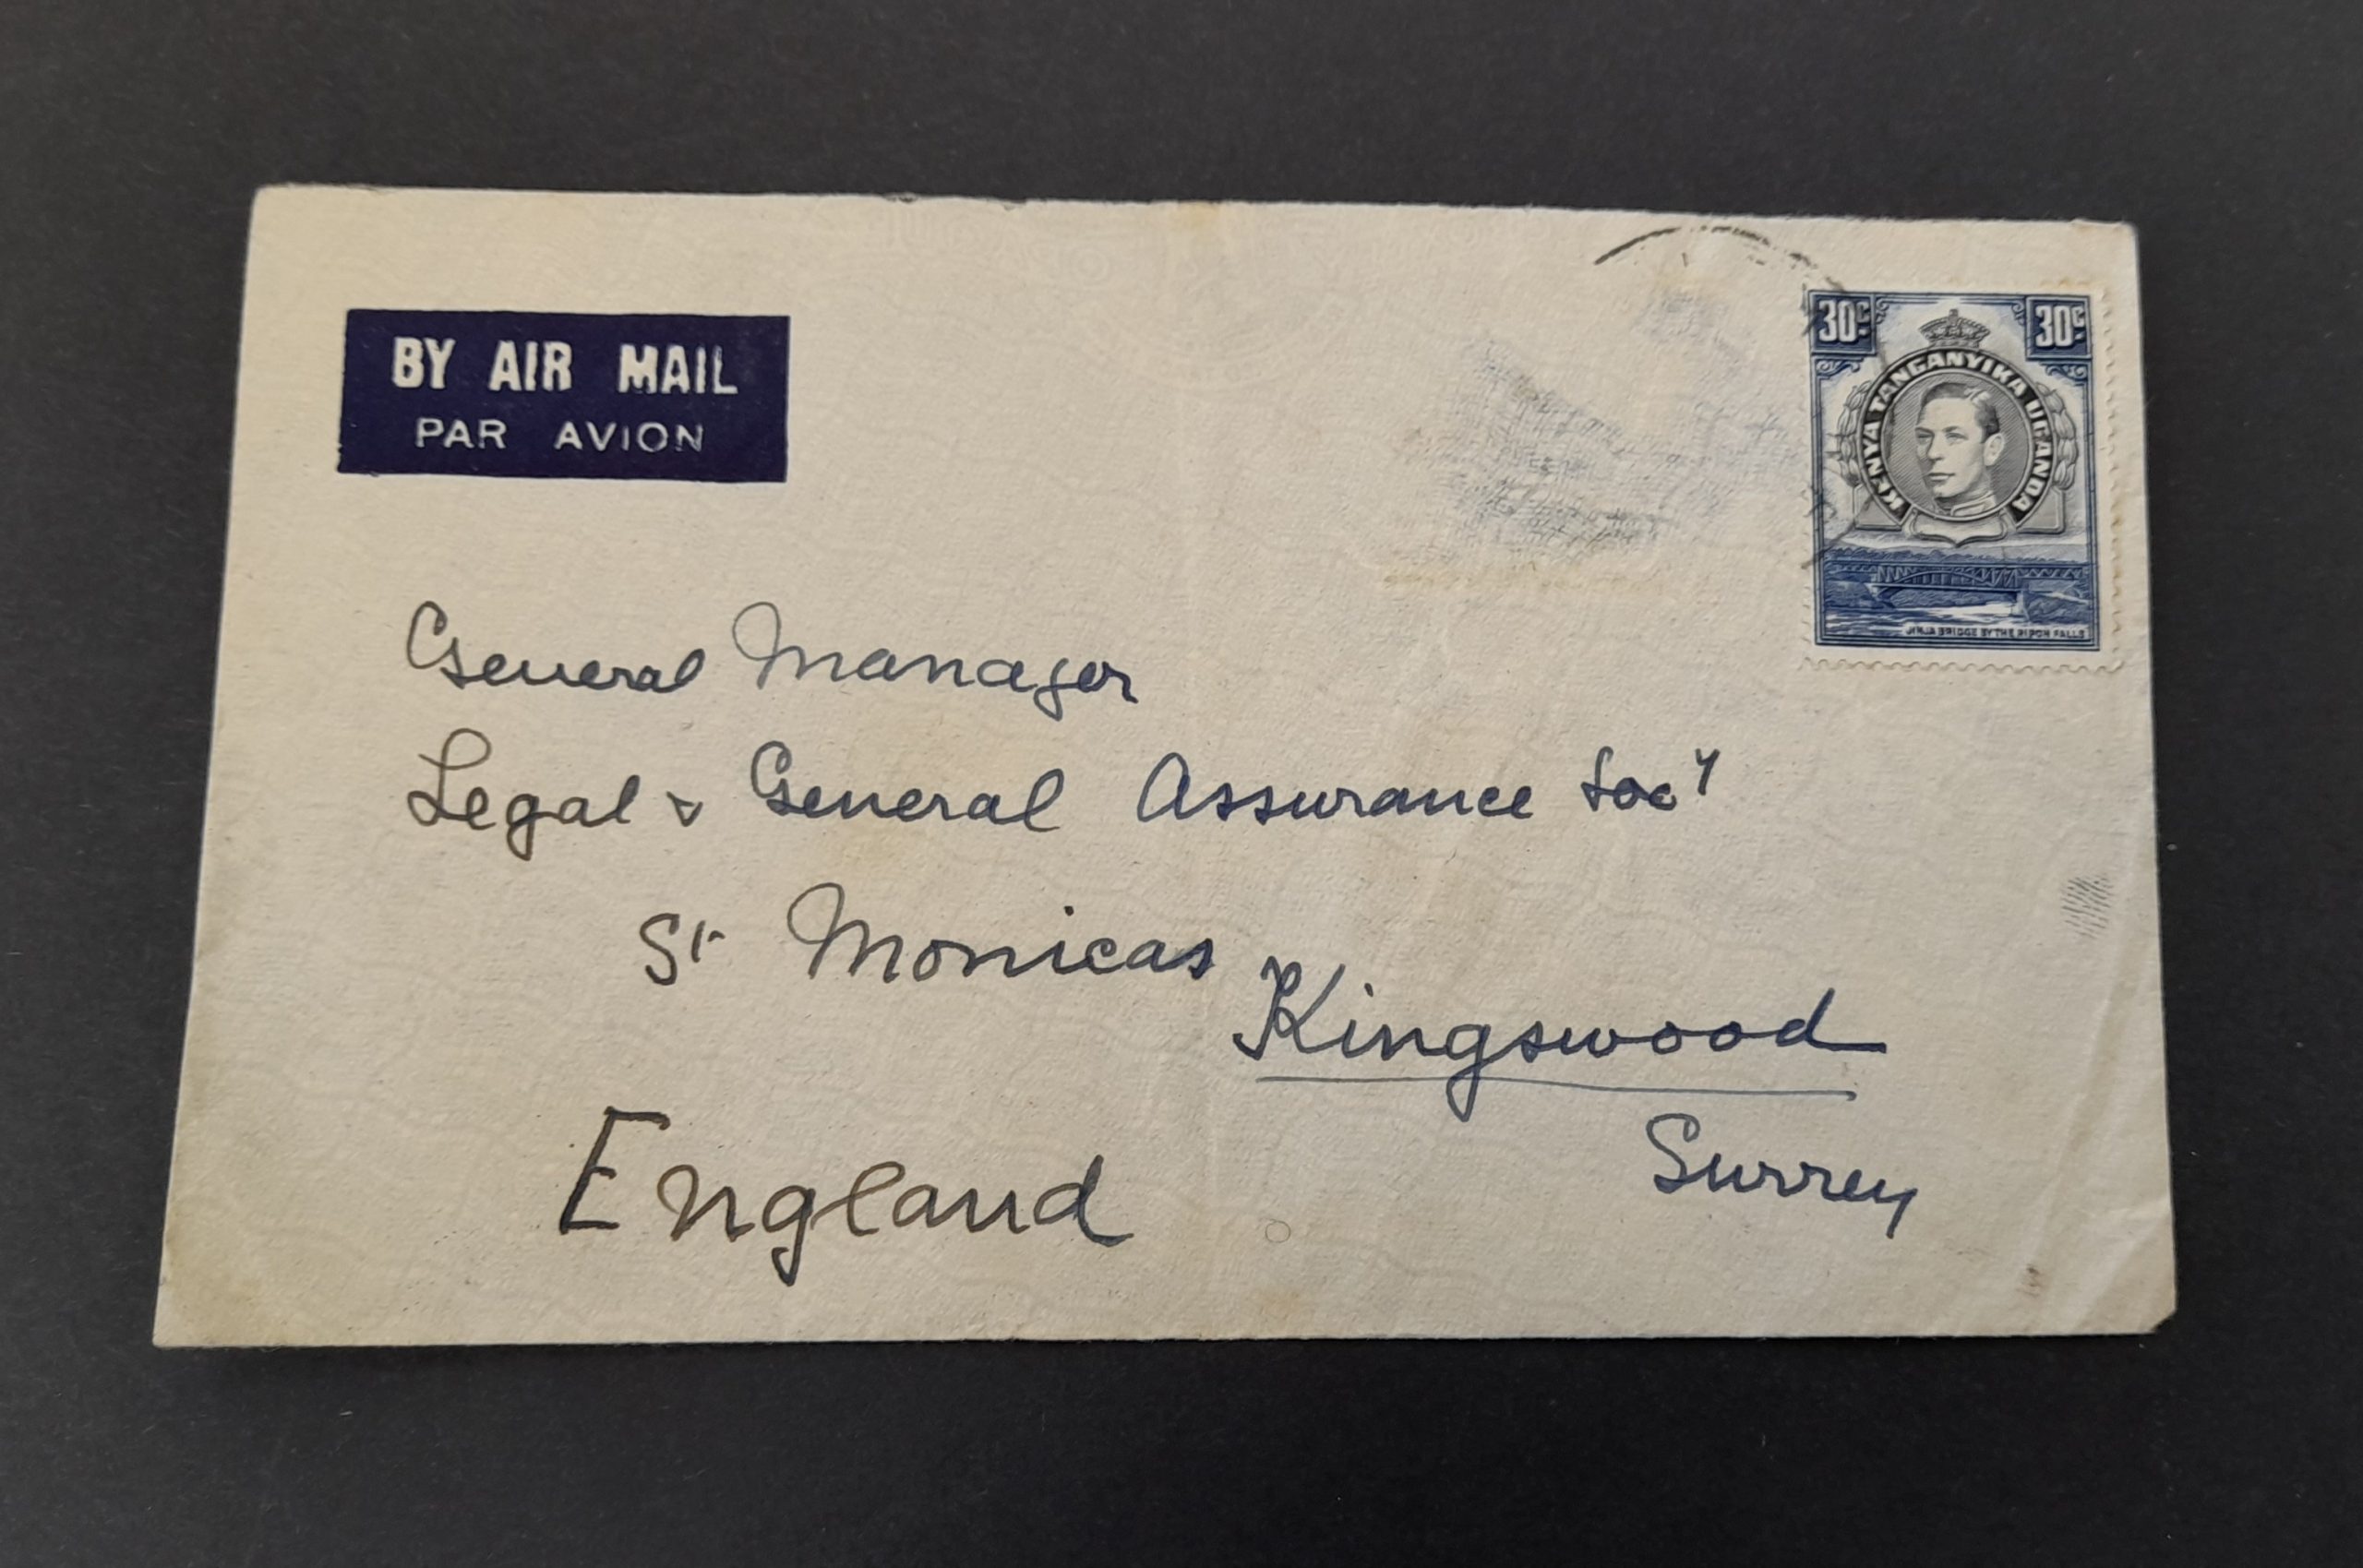 BY AIR MAIL
PAR AVION
30c 30c
KENYA TANGANYIKA UGANDA
JINJA BRIDGE BY THE RIPON FALLS
General Manager
Legal & General Assurance Socy
St Monicas
Kingswood
Surrey
England